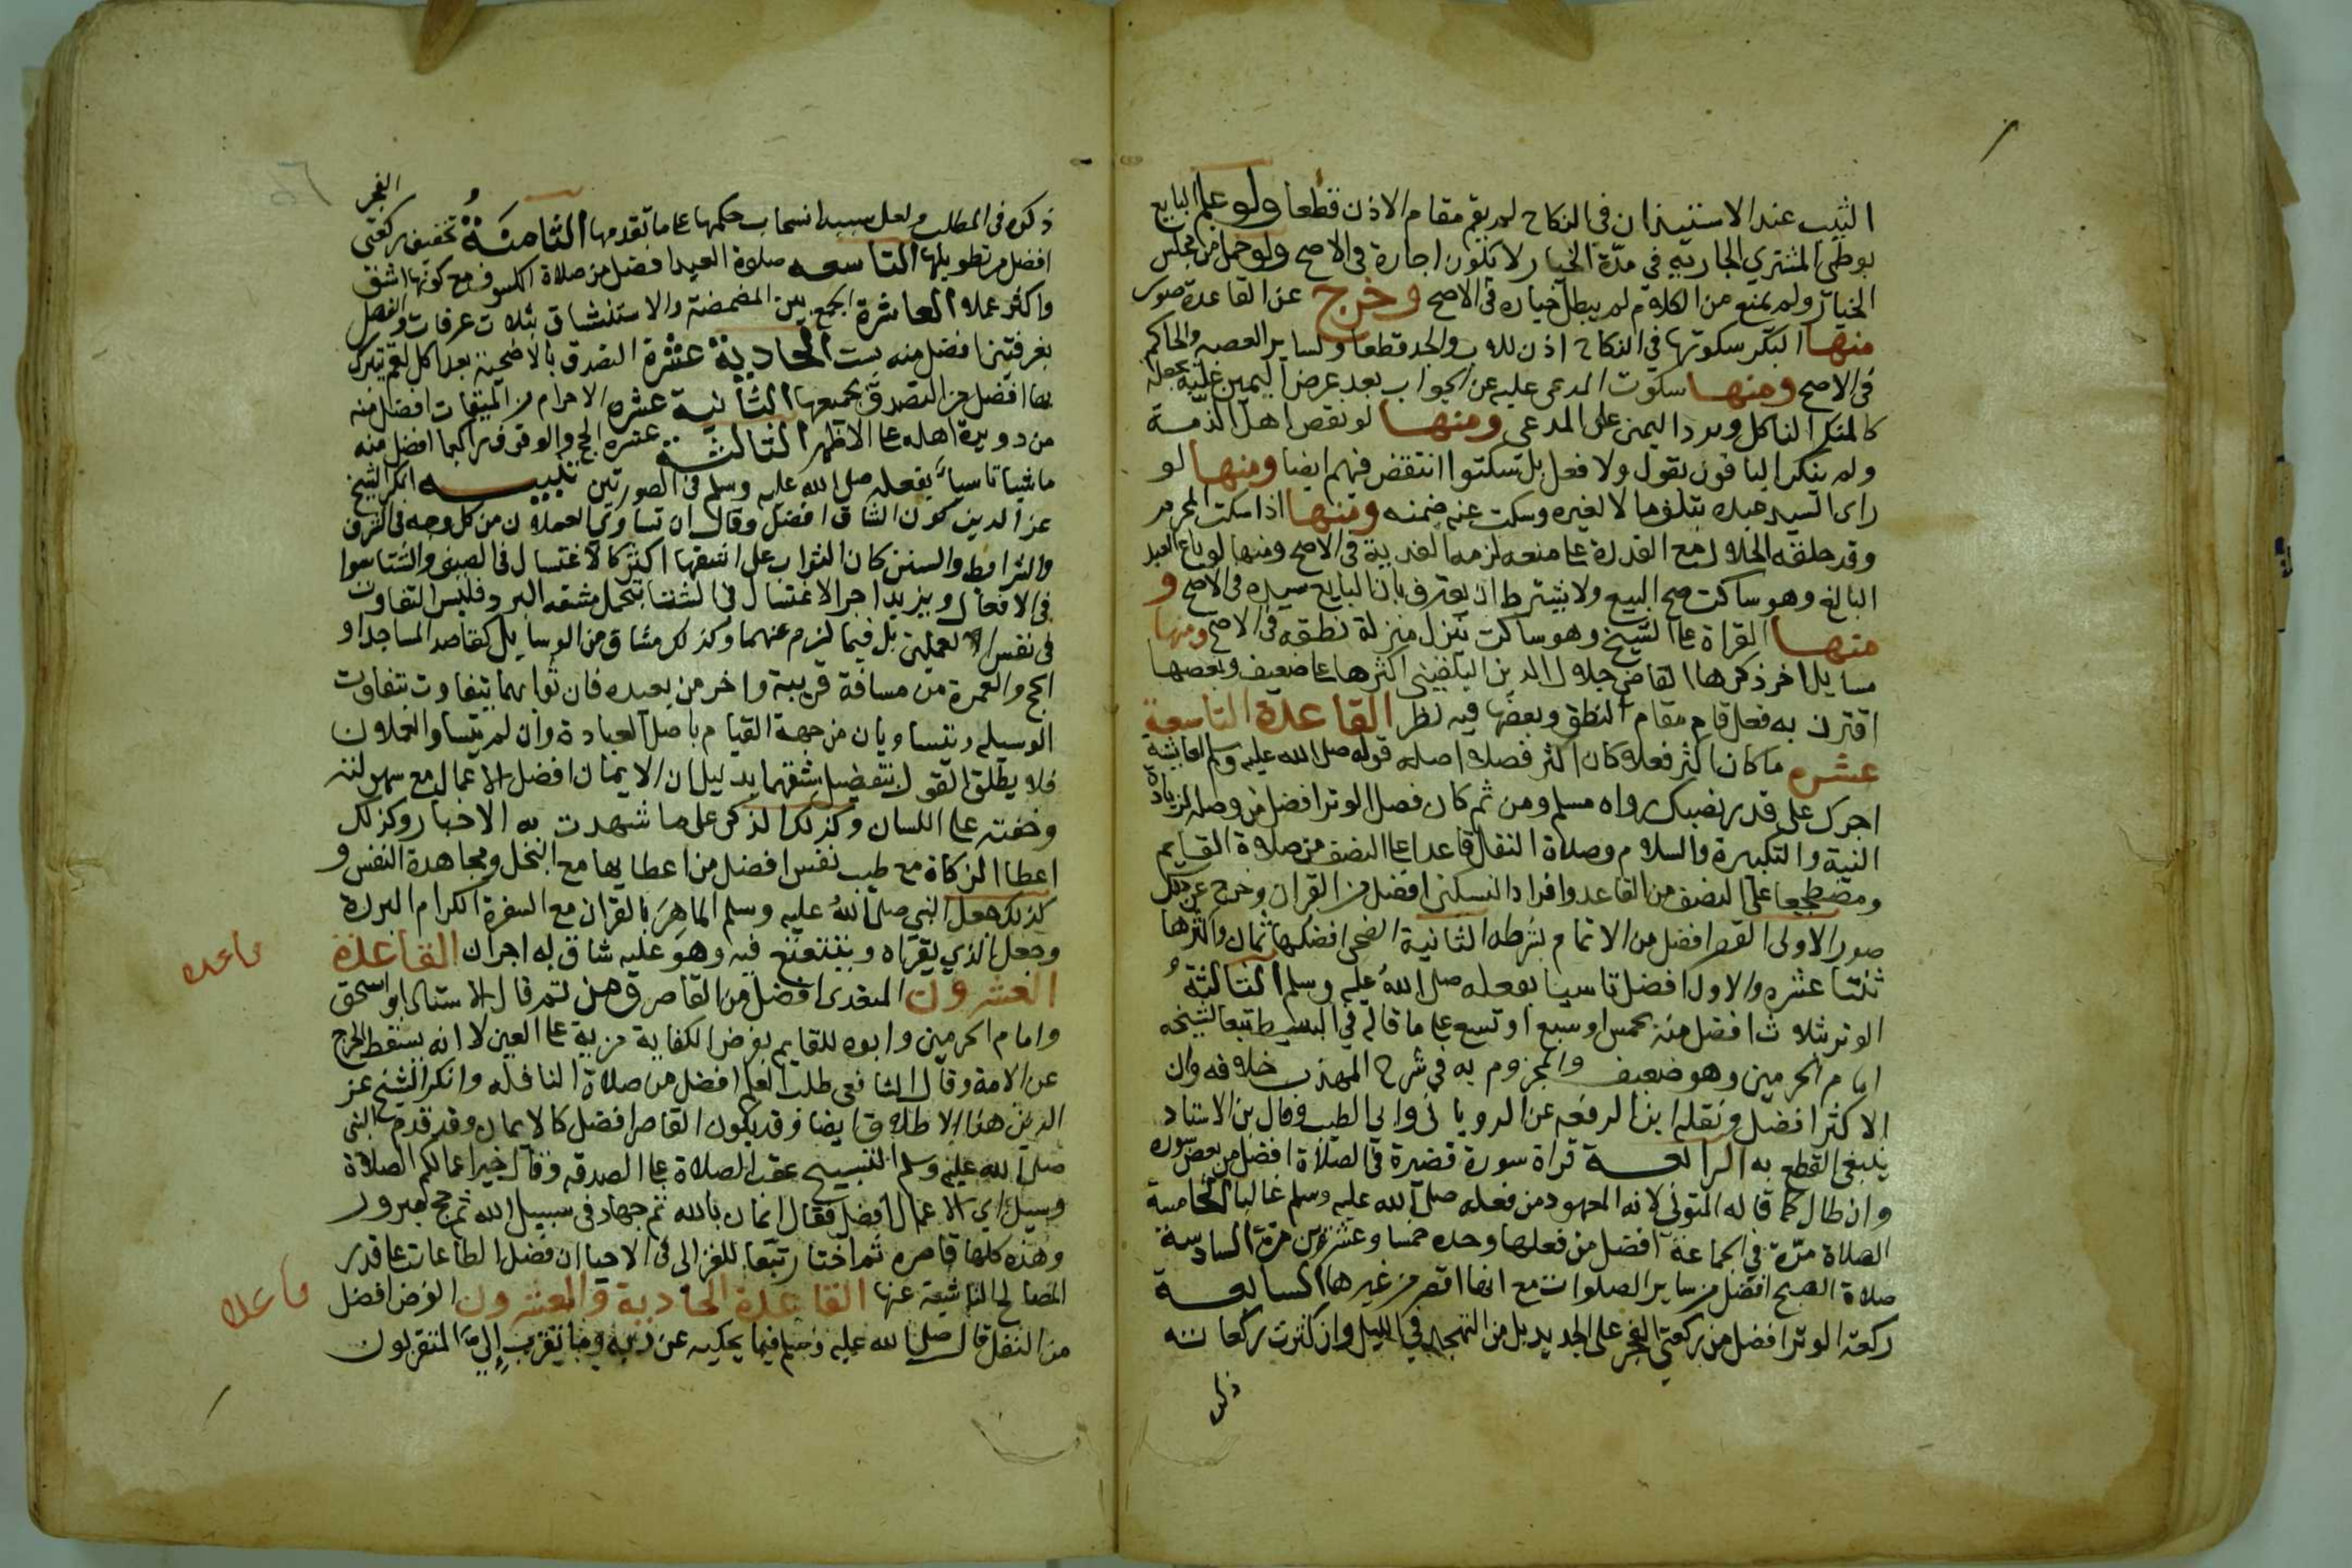 الثيب عند الاستيذان في النكاح لم يقم مقام الاذن قطعا ولو علم البايع
بوطي المشتري الجارية في مدة الخيار لا يكون اجازة في الاصح ولو حمل من مجلس
الخيار ولم يمنع من الكلام لم يبطل خياره في الاصح وخرج عن القاعدة صور
منها البكر سكوتها في النكاح اذن للاب والجد قطعا ولساير العصبه والحاكم
في الاصح ومنها سكوت المدعى عليه عن الجواب بعد عرض اليمين عليه يجعله
كالمنكر الناكل ويرد اليمين على المدعي ومنها لو نقض اهل الذمة
ولم ينكر الباقون بقول ولا فعل بل سكتوا انتقض فيهم ايضا ومنها لو
راى السيد عبده يتلف مالا لغيره وسكت عنه ضمنه ومنها اذا سكت المحرم
وقد حلقه الحلال مع القدرة على منعه لزمه الفدية في الاصح ومنها لو باع العبد
البالغ وهو ساكت صح البيع ولا يشترط ان يعترف بان البايع سيده في الاصح و
منها القراة على الشيخ وهو ساكت ينزل منزلة نطقه في الاصح ومنها
مسايل اخر ذكرها القاضي جلال الدين البلقيني اكثرها على ضعيف وبعضها
اقترن به فعل قام مقام النطق وبعضها فيه نظر القاعدة التاسعة
عشره ما كان اكثر فعلا كان اكثر فضلا اصله قوله صلى الله عليه وسلم لعائشة
اجرك على قدر نصبك رواه مسلم ومن ثم كان فصل الوتر افضل من وصله لزيادة
النية والتكبيرة والسلام وصلاة النفل قاعدا على النصف من صلاة القايم
ومضطجعا على النصف من القاعد وافراد النسكين افضل من القران وخرج عن ذلك
صور الاولى القصر افضل من الاتمام بشرطه الثانية الضحى افضلها ثمان واكثرها
ثنتا عشره والاول افضل تاسيا بفعله صلى الله عليه وسلم الثالثة
الوتر بثلاث افضل منه بخمس او سبع او تسع على ما قاله في البسيط تبعا لشيخه
امام الحرمين وهو ضعيف والمجزوم به في شرح المهذب خلافه وان
الاكثر افضل ونقله ابن الرفعه عن الروياني وابي الطيب وقال بن الاستاد
ينبغي القطع به الرابعة قراة سورة قصيرة في الصلاة افضل من بعض سوره
وان طال كما قاله المتولي لانه المعهود من فعله صلى الله عليه وسلم غالبا الخامسة
الصلاة مرة في الجماعة افضل من فعلها وحده خمسا وعشرين مرة السادسة
صلاة الصبح افضل من ساير الصلوات مع انها اقصر من غيرها السابعة
ركعة الوتر افضل من ركعتي الفجر على الجديد بل من التهجد في الليل وان كثرت ركعاته
ذكره
ذكره في المطلب ولعل سببه انسحاب حكمها على ما تقدمها الثامنة تخفيف ركعتي الفجر
افضل من تطويلها التاسعه صلاة العيد افضل من صلاة الكسوف مع كونها اشق
واكثر عملا العاشرة الجمع بين المضمضة والاستنشاق بثلاث غرفات والفصل
بغرفتين افضل منه بست الحادية عشرة التصدق بالاضحية بعد اكل لقم يتبرك
بها افضل من التصدق بجميعها الثانية عشره الاحرام من الميقات افضل منه
من دويرة اهله على الاظهر الثالثة عشره الحج والوقوف راكبا افضل منه
ماشيا تاسيا بفعله صلى الله عليه وسلم في الصورتين تنبيه انكر الشيخ
عز الدين كون الشاق افضل وقال ان تساوي العملان من كل وجه في الشرف
والشرايط والسنن كان الثواب على اشقهما اكثر كالاغتسال في الصيف والشتا سوا
في الافعال ويزيد اجر الاغتسال في الشتا بتحمل مشقه البرد فليس التفاوت
في نفس العملين بل فيما لزم عنهما وكذلك مشاق من الوسايل كقاصد المساجد او
الحج والعمرة من مسافة قريبة واخر من بعيده فان ثوابهما يتفاوت بتفاوت
الوسيله ويتساويان من جهة القيام باصل العبادة وان لم يتساو العملان
فلا يطلق القول بتفضيل اشقهما بدليل ان الايمان افضل الاعمال مع سهولته
وخفته على اللسان وكذلك الذكر على ما شهدت به الاخبار وكذلك
اعطا الزكاة مع طيب نفس افضل من اعطايها مع البخل ومجاهدة النفس و
كذلك جعل النبي صلى الله عليه وسلم الماهر بالقران مع السفرة الكرام البررة
وجعل الذي يقراه ويتتعتع فيه وهو عليه شاق له اجران القاعدة
قاعده
العشرون المتعدى افضل من القاصر ومن ثم قال الاستاد ابو اسحق
وامام الحرمين وابوه للقايم بفرض الكفاية مزية على العين لانه يسقط الحرج
عن الامة وقال الشافعي طلب العلم افضل من صلاة النافله وانكر الشيخ عز
الدين هذا الاطلاق ايضا فقد يكون القاصر افضل كالايمان وقد قدم النبي
صلى الله عليه وسلم التسبيح عقب الصلاة على الصدقه وقال خير اعمالكم الصلاة
وسيل اي الاعمال افضل فقال ايمان بالله ثم جهاد في سبيل الله ثم حج مبرور
وهذه كلها قاصره ثم اختار تبعا للغزالي في الاحيا ان فضل الطاعات على قدر
المصالح الناشية عنها القاعدة الحادية والعشرون الفرض افضل
قاعدة
من النفل قال صلى الله عليه وسلم فيما يحكيه عن ربه وما تقرب الي المتقربون